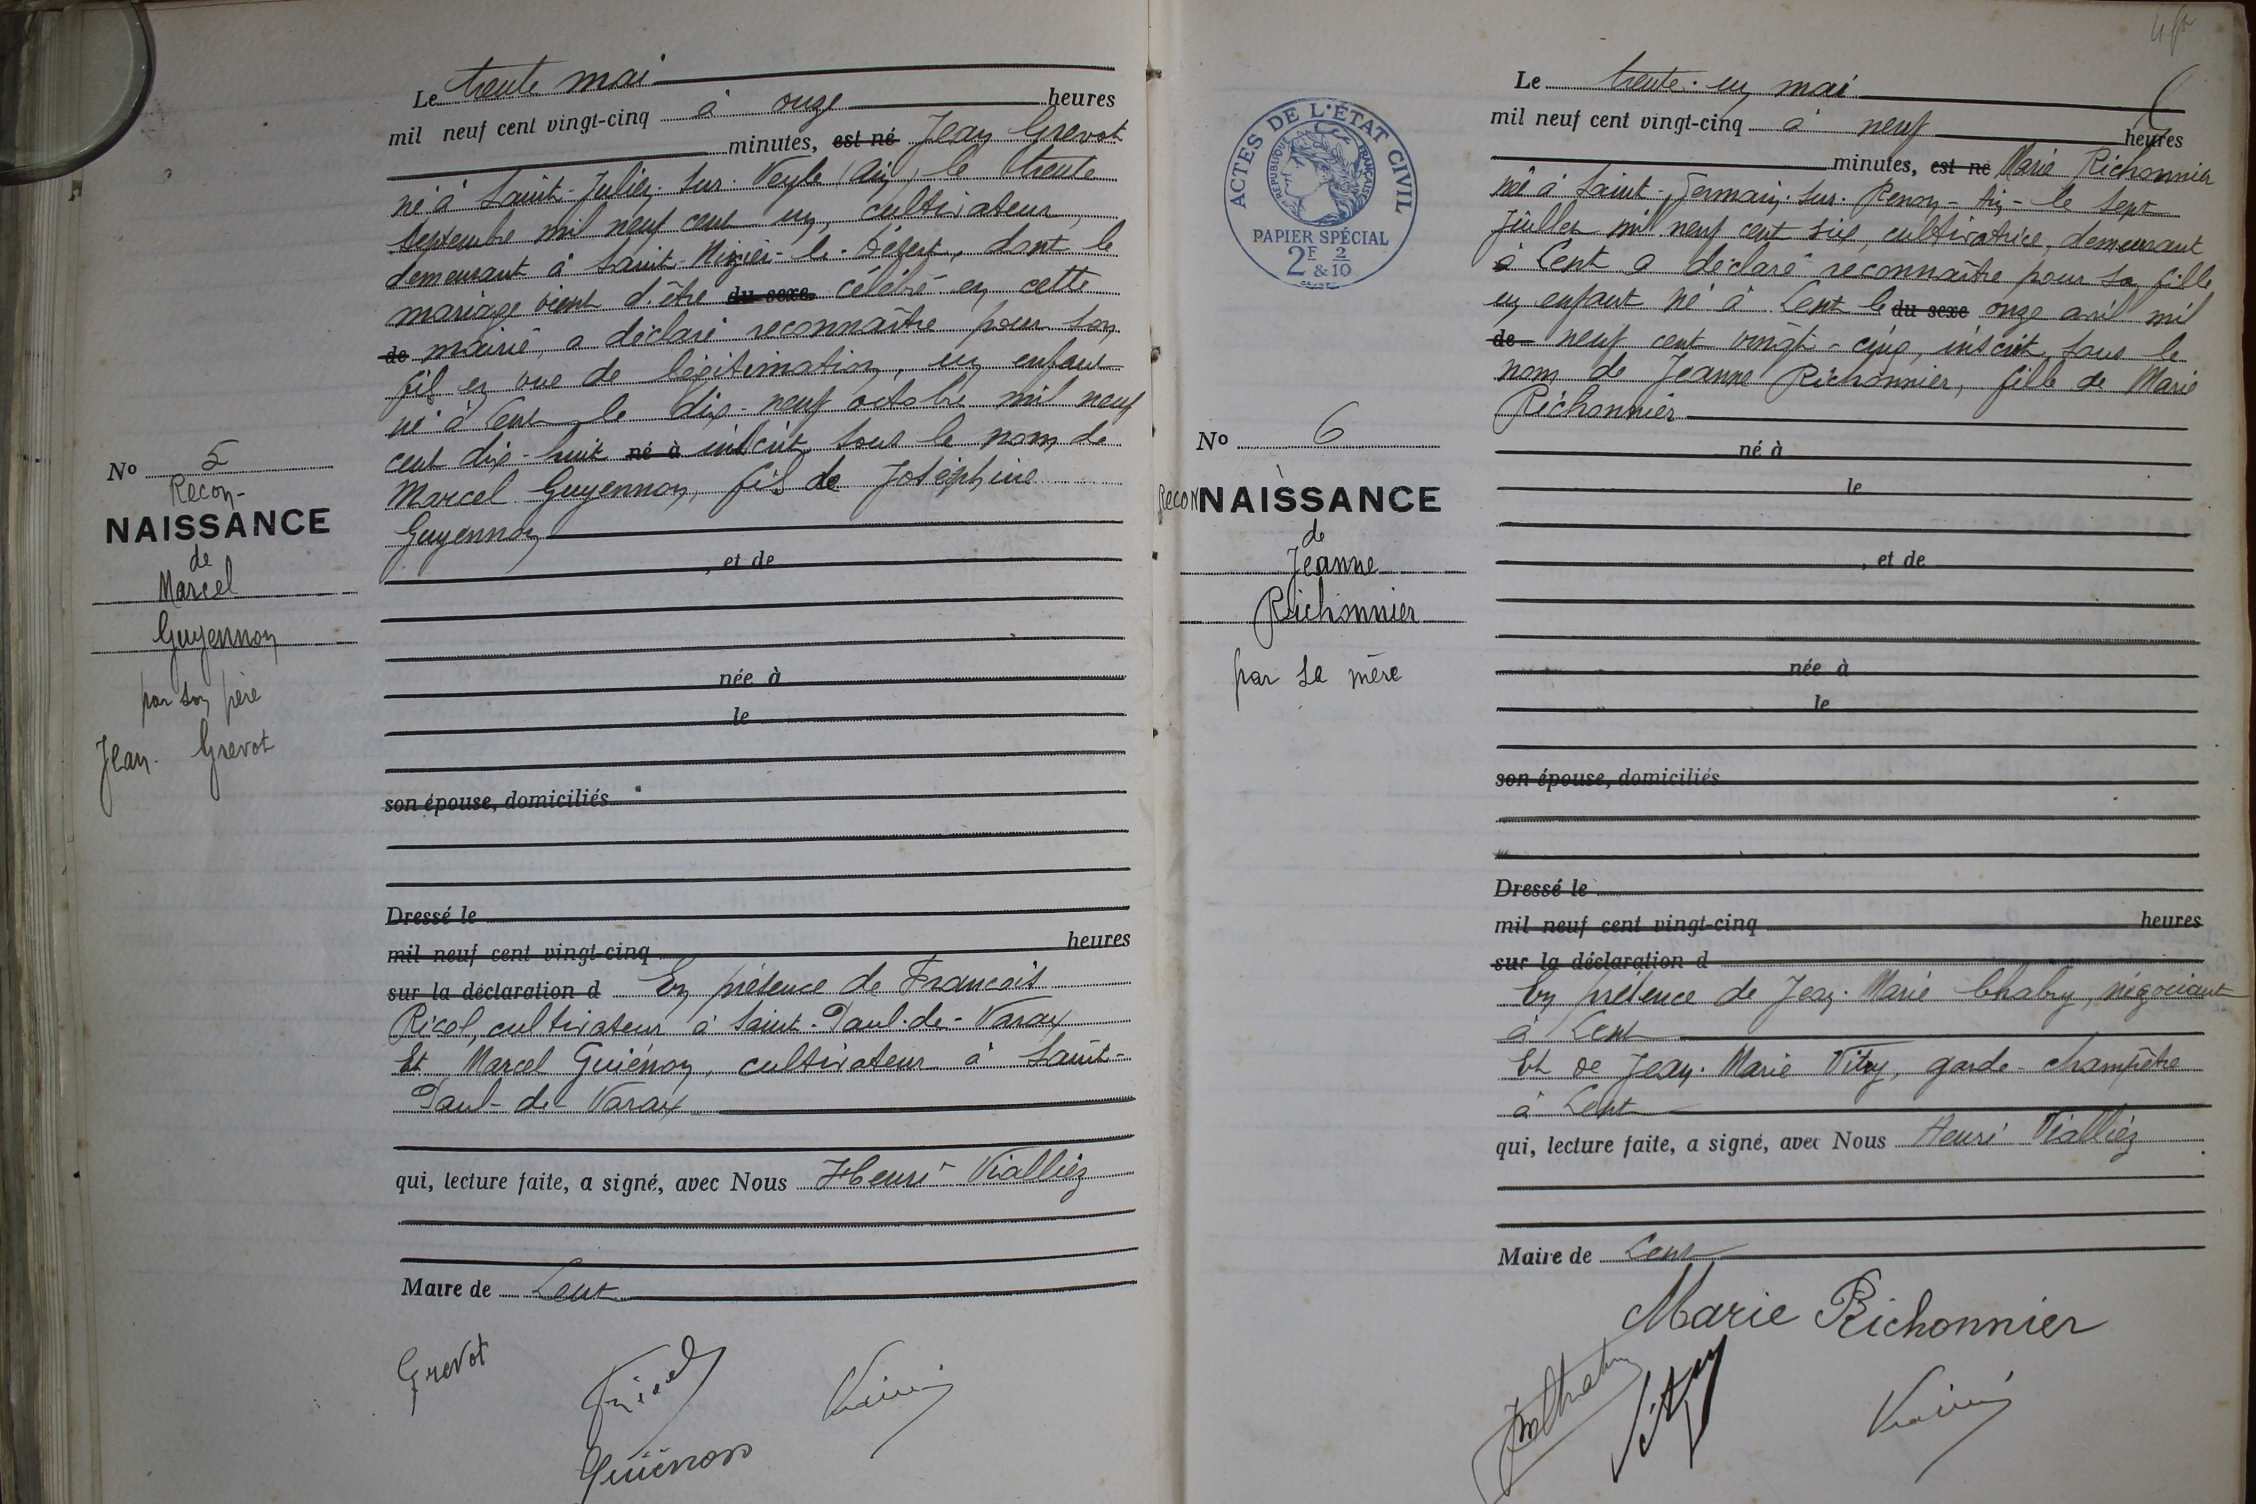 Le trente mai
mil neuf cent vingt-cinq à onze heures
minutes, est né Jean Grevot
né à Saint-Julien-sur-Veyle, Ain, le trente
septembre mil neuf cent un, cultivateur,
demeurant à Saint-Nizier-le-Désert, dont le
mariage vient d'être du sexe célébré en cette
de mairie, a déclaré reconnaître pour son
fils en vue de légitimation, un enfant
né à Lent le dix-neuf octobre mil neuf
cent dix-huit né à inscrit sous le nom de
Marcel Guyennon, fils de Joséphine
Guyennon
, et de
née à
le
son épouse, domiciliés
Dressé le
mil neuf cent vingt-cinq heures
sur la déclaration d En présence de François
Ricol, cultivateur à Saint-Paul-de-Varax
Et Marcel Guiénon, cultivateur à Saint-
Paul-de-Varax
qui, lecture faite, a signé, avec Nous Henri Vialliez
Maire de Lent
Grevot
Guiénon
No 5
Recon-
NAISSANCE
de
Marcel
Guyennon
par son père
Jean Grevot
ACTES DE L'ÉTAT CIVIL
RÉPUBLIQUE FRANÇAISE
PAPIER SPÉCIAL
2F & 2/10
No 6
Recon NAISSANCE
de
Jeanne
Richonnier
par sa mère
Le trente-un mai
mil neuf cent vingt-cinq à neuf heures
minutes, est né Marie Richonnier
née à Saint-Germain-sur-Renon-Ain-le sept
juillet mil neuf cent six, cultivatrice, demeurant
à Lent a déclaré reconnaître pour sa fille
un enfant né à Lent le du sexe onze avril mil
de neuf cent vingt-cinq, inscrit sous le
nom de Jeanne Richonnier, fille de Marie
Richonnier
né à
le
, et de
née à
le
son épouse, domiciliés
Dressé le
mil neuf cent vingt-cinq heures
sur la déclaration d
En présence de Jean-Marie Chabry, négociant
à Lent
Et de Jean-Marie Vitry, garde-champêtre
à Lent
qui, lecture faite, a signé, avec Nous Henri Vialliez
Maire de Lent
Marie Richonnier
Vitry